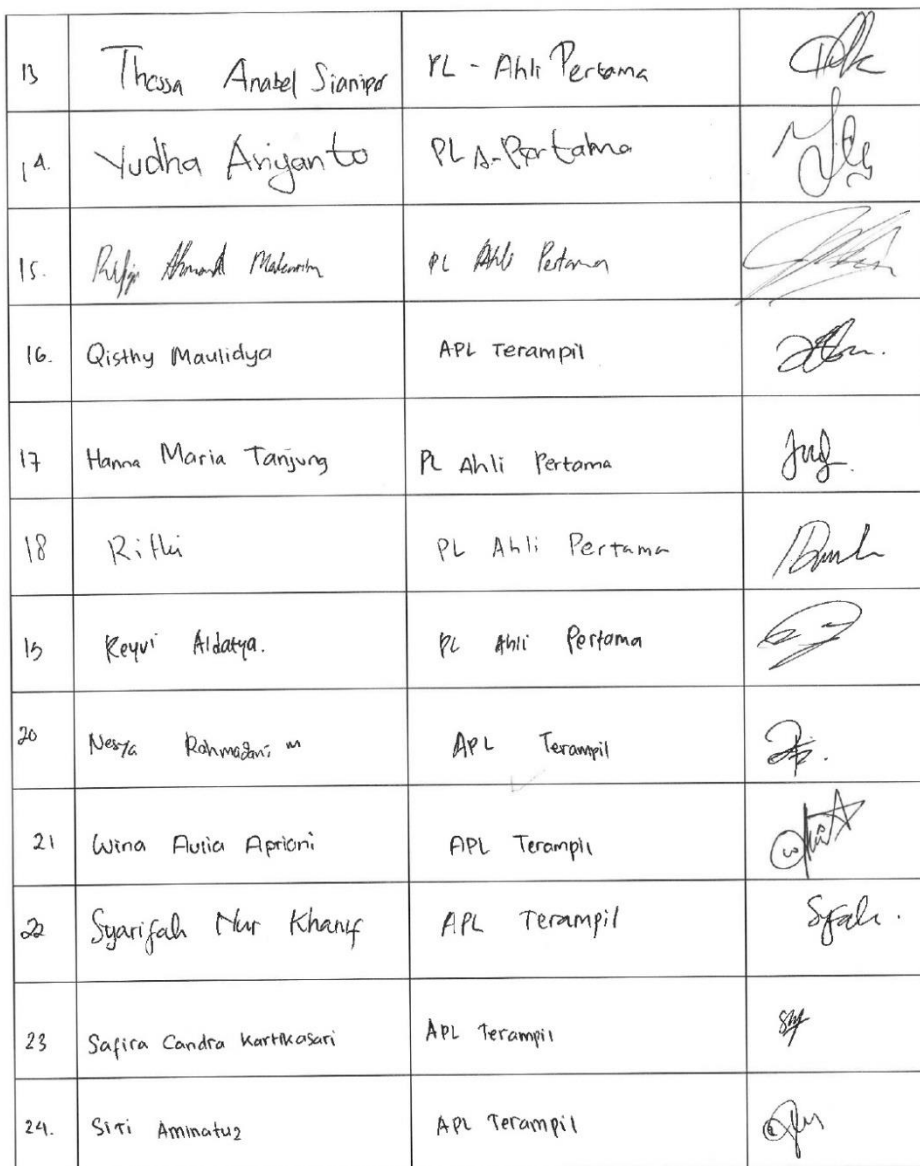 13 Thessa Anabel Sianipar PL - Ahli Pertama
14. Yudha Ariyanto PL A-Pertama
15. Ahmad PL Ahli Pertama
16. Qisthy Maulidya APL Terampil
17 Hanna Maria Tanjung PL Ahli Pertama
18 Rifki PL Ahli Pertama
19 Reyvi Aldatya. PL Ahli Pertama
20 Nesya Rahmadani M APL Terampil
21 Wina Aulia Apriani APL Terampil
22 Syarifah Nur Khanif APL Terampil Syfah.
23 Safira Candra Kartikasari APL Terampil
24. Siti Aminatuz APL Terampil